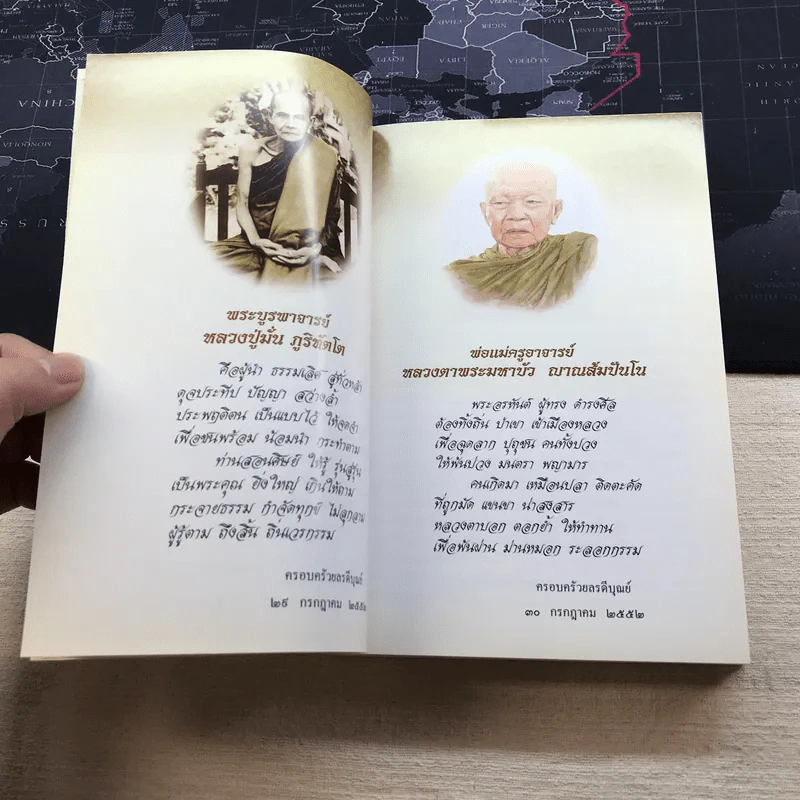 พระบูรพาจารย์
หลวงปู่มั่น ภูริทัตโต
คือผู้นำ ธรรมเลิศ สู่ทั่วหล้า
ดุจประทีป ปัญญา สว่างล้ำ
ประพฤติตน เป็นแบบไว้ ให้จดจำ
เพื่อชนพร้อม น้อมนำ กระทำตาม
ท่านสอนศิษย์ ให้รู้ รุ่นสู่รุ่น
เป็นพระคุณ ยิ่งใหญ่ เกินให้ถาม
กระจายธรรม กำจัดทุกข์ ไม่ลุกลาม
ผู้รู้ตาม ถึงสิ้น ถิ่นเวรกรรม
ครอบครัวยลรดีบุณย์
๒๙ กรกฎาคม ๒๕๕๒
พ่อแม่ครูอาจารย์
หลวงตาพระมหาบัว ญาณสัมปันโน
พระอรหันต์ ผู้ทรง ดำรงศีล
ต้องทิ้งถิ่น ป่าเขา เข้าเมืองหลวง
เพื่อฉุดลาก ปุถุชน คนทั้งปวง
ให้พ้นบ่วง มนตรา พญามาร
คนเกิดมา เหมือนปลา ติดตะคัด
ที่ถูกมัด แขนขา น่าสงสาร
หลวงตาบอก ตอกย้ำ ให้ทำทาน
เพื่อพ้นผ่าน ม่านหมอก ระลอกกรรม
ครอบครัวยลรดีบุณย์
๓๐ กรกฎาคม ๒๕๕๒
CHINA
MONGOLIA
RUSS
EGYPT
LIBYA
ALGERIA
NIGER
CHAD
SUDAN
MOROCCO